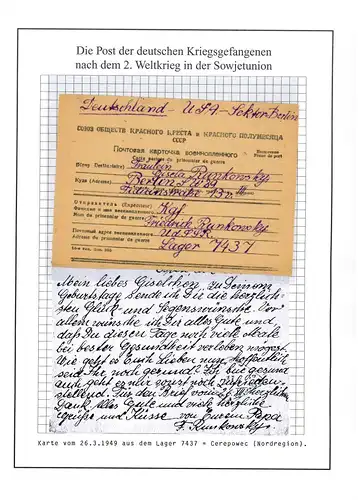 Die Post der deutschen Kriegsgefangenen
nach dem 2. Weltkrieg in der Sowjetunion
Deutschland - USA - Sektor Berlin
СОЮЗ ОБЩЕСТВ КРАСНОГО КРЕСТА и КРАСНОГО ПОЛУМЕСЯЦА
СССР
Почтовая карточка военнопленного
Carte postale du prisonnier de guerre
Fräulein
Кому (Destinataire)
Gisela Runkowsky
Куда (Adresse)
Berlin SW 29
Отправитель (Expéditeur)
Фамилия и имя военнопленного
Nom du prisonnier de guerre
Kgf.
Friedrich Runkowsky
Почтовый адрес военнопленного
Adresse du prisonnier de guerre
U.d.S.S.R.
Lager 7437
Mein liebes Giselchen, zu Deinem
Geburtstage sende ich Dir die herzlich-
sten Glück- und Segenswünsche. Vor
allem wünsche ich Dir alles Gute und
daß Du diesen Tag noch viele Male
bei bester Gesundheit verleben mögest.
Wie geht es Euch Lieben nun, hoffentlich
seid Ihr noch gesund. Ich bin gesund
auch geht es mir sonst noch zufrieden-
stellend. Für den Brief vom herzlichen
Dank. Alles Gute und viele herzliche
Grüße und Küsse von Eurem Papa
F. Runkowsky
Karte vom 26.3.1949 aus dem Lager 7437 = Cerepowec (Nordregion).